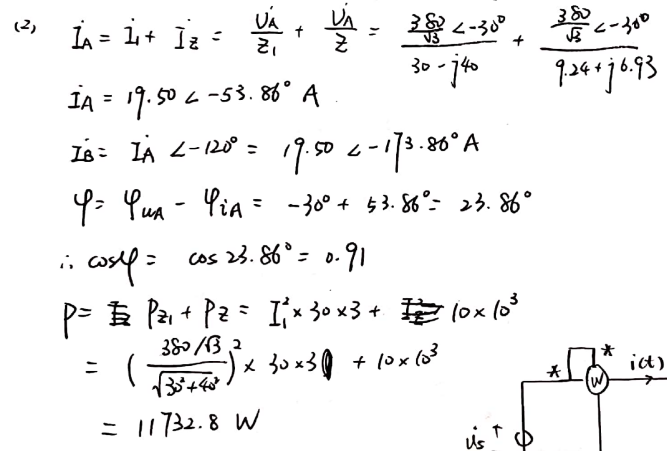 (2) İA = İ1 + İZ = U̇A/Z1 + U̇A/Z = (380/√3 ∠-30°)/(30-j40) + (380/√3 ∠-30°)/(9.24+j6.93)
İA = 19.50 ∠-53.86° A
İB = İA ∠-120° = 19.50 ∠-173.86° A
φ = φuA - φiA = -30° + 53.86° = 23.86°
∴ cosφ = cos 23.86° = 0.91
P = PZ1 + PZ = I1² × 30 × 3 + 10 × 10³
= ((380/√3)/√(30²+40²))² × 30 × 3 + 10 × 10³
= 11732.8 W
* * W i(t)
u̇s ↑